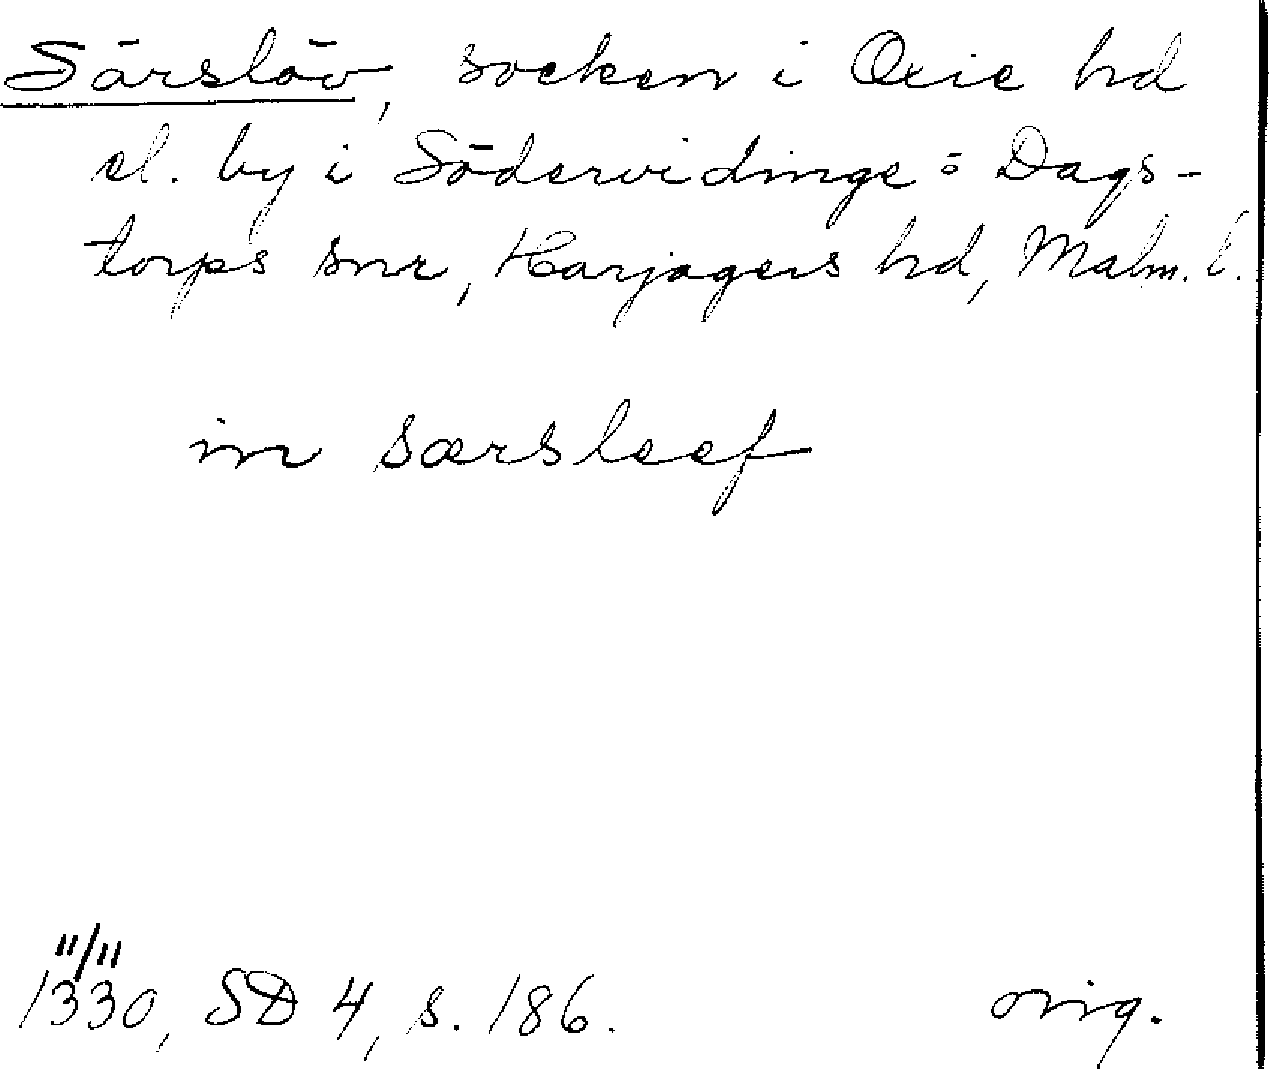 Särslöv, socken i Oxie hd
el. by i Södervidinge o Dags-
torps snr, Harjagers hd, Malm. l.
in særsleef
11/11
1330, SD 4, s. 186.
orig.